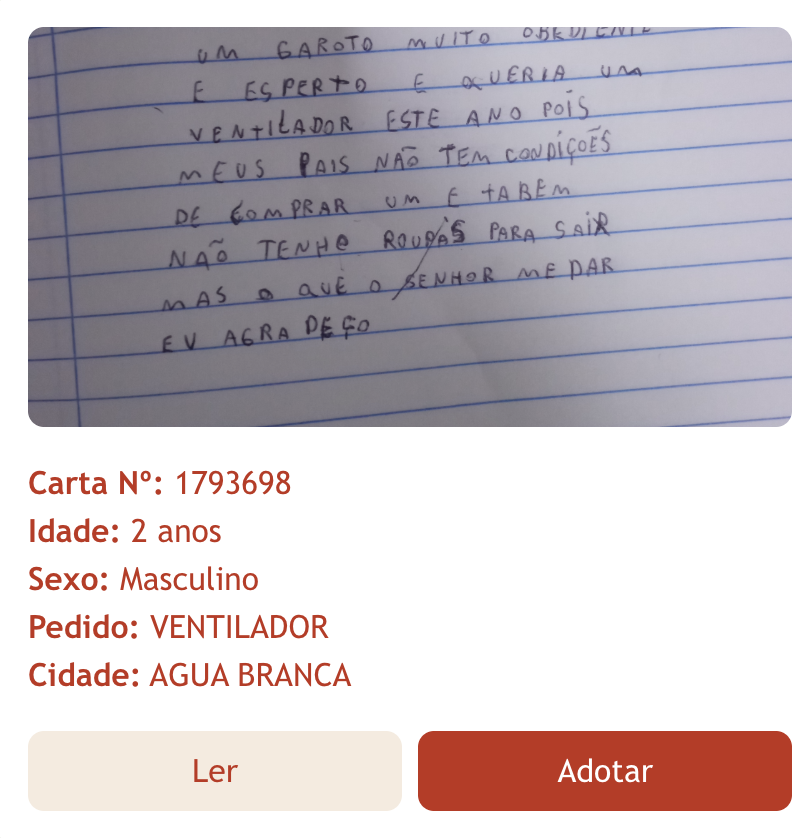 UM GAROTO MUITO OBEDIENTE
E ESPERTO E QUERIA UM
VENTILADOR ESTE ANO POIS
MEUS PAIS NÃO TEM CONDIÇOẼS
DE COMPRAR UM E TABEM
NÃO TENHO ROUPAS PARA SAIR
MAS O QUE O SENHOR ME DAR
EU AGRADEÇO
Carta Nº: 1793698
Idade: 2 anos
Sexo: Masculino
Pedido: VENTILADOR
Cidade: AGUA BRANCA
Ler
Adotar